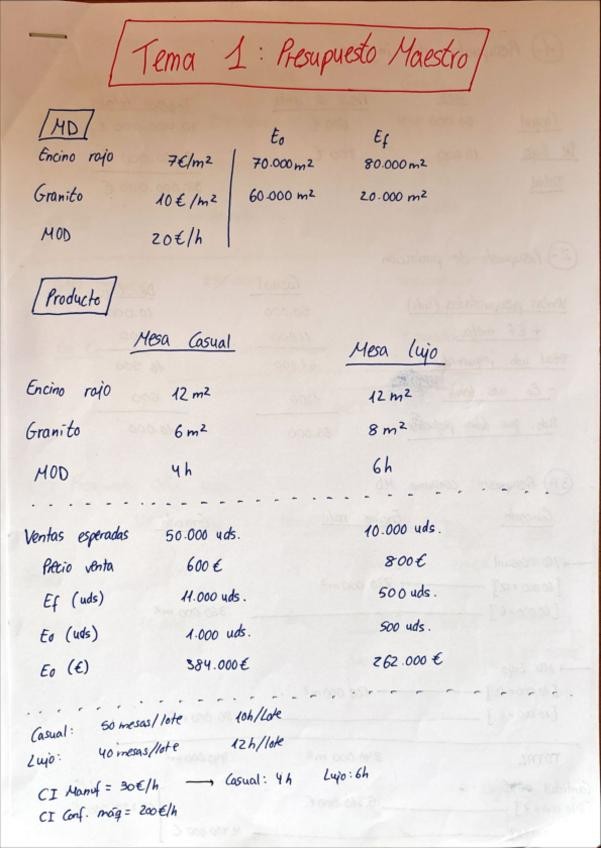 Tema 1: Presupuesto Maestro
MD E₀ Ef
Encino rojo 7€/m² 70.000 m² 80.000 m²
Granito 10€/m² 60.000 m² 20.000 m²
MOD 20€/h
Producto
Mesa Casual Mesa lujo
Encino rojo 12 m² 12 m²
Granito 6 m² 8 m²
MOD 4h 6h
Ventas esperadas 50.000 uds. 10.000 uds.
Precio venta 600€ 800€
Ef (uds) 11.000 uds. 500 uds.
E₀ (uds) 1.000 uds. 500 uds.
E₀ (€) 384.000€ 262.000€
Casual: 50 mesas/lote 10h/Lote
Lujo: 40 mesas/lote 12h/lote
CI Manuf = 30€/h → Casual: 4h Lujo: 6h
CI Conf. máq = 200€/h